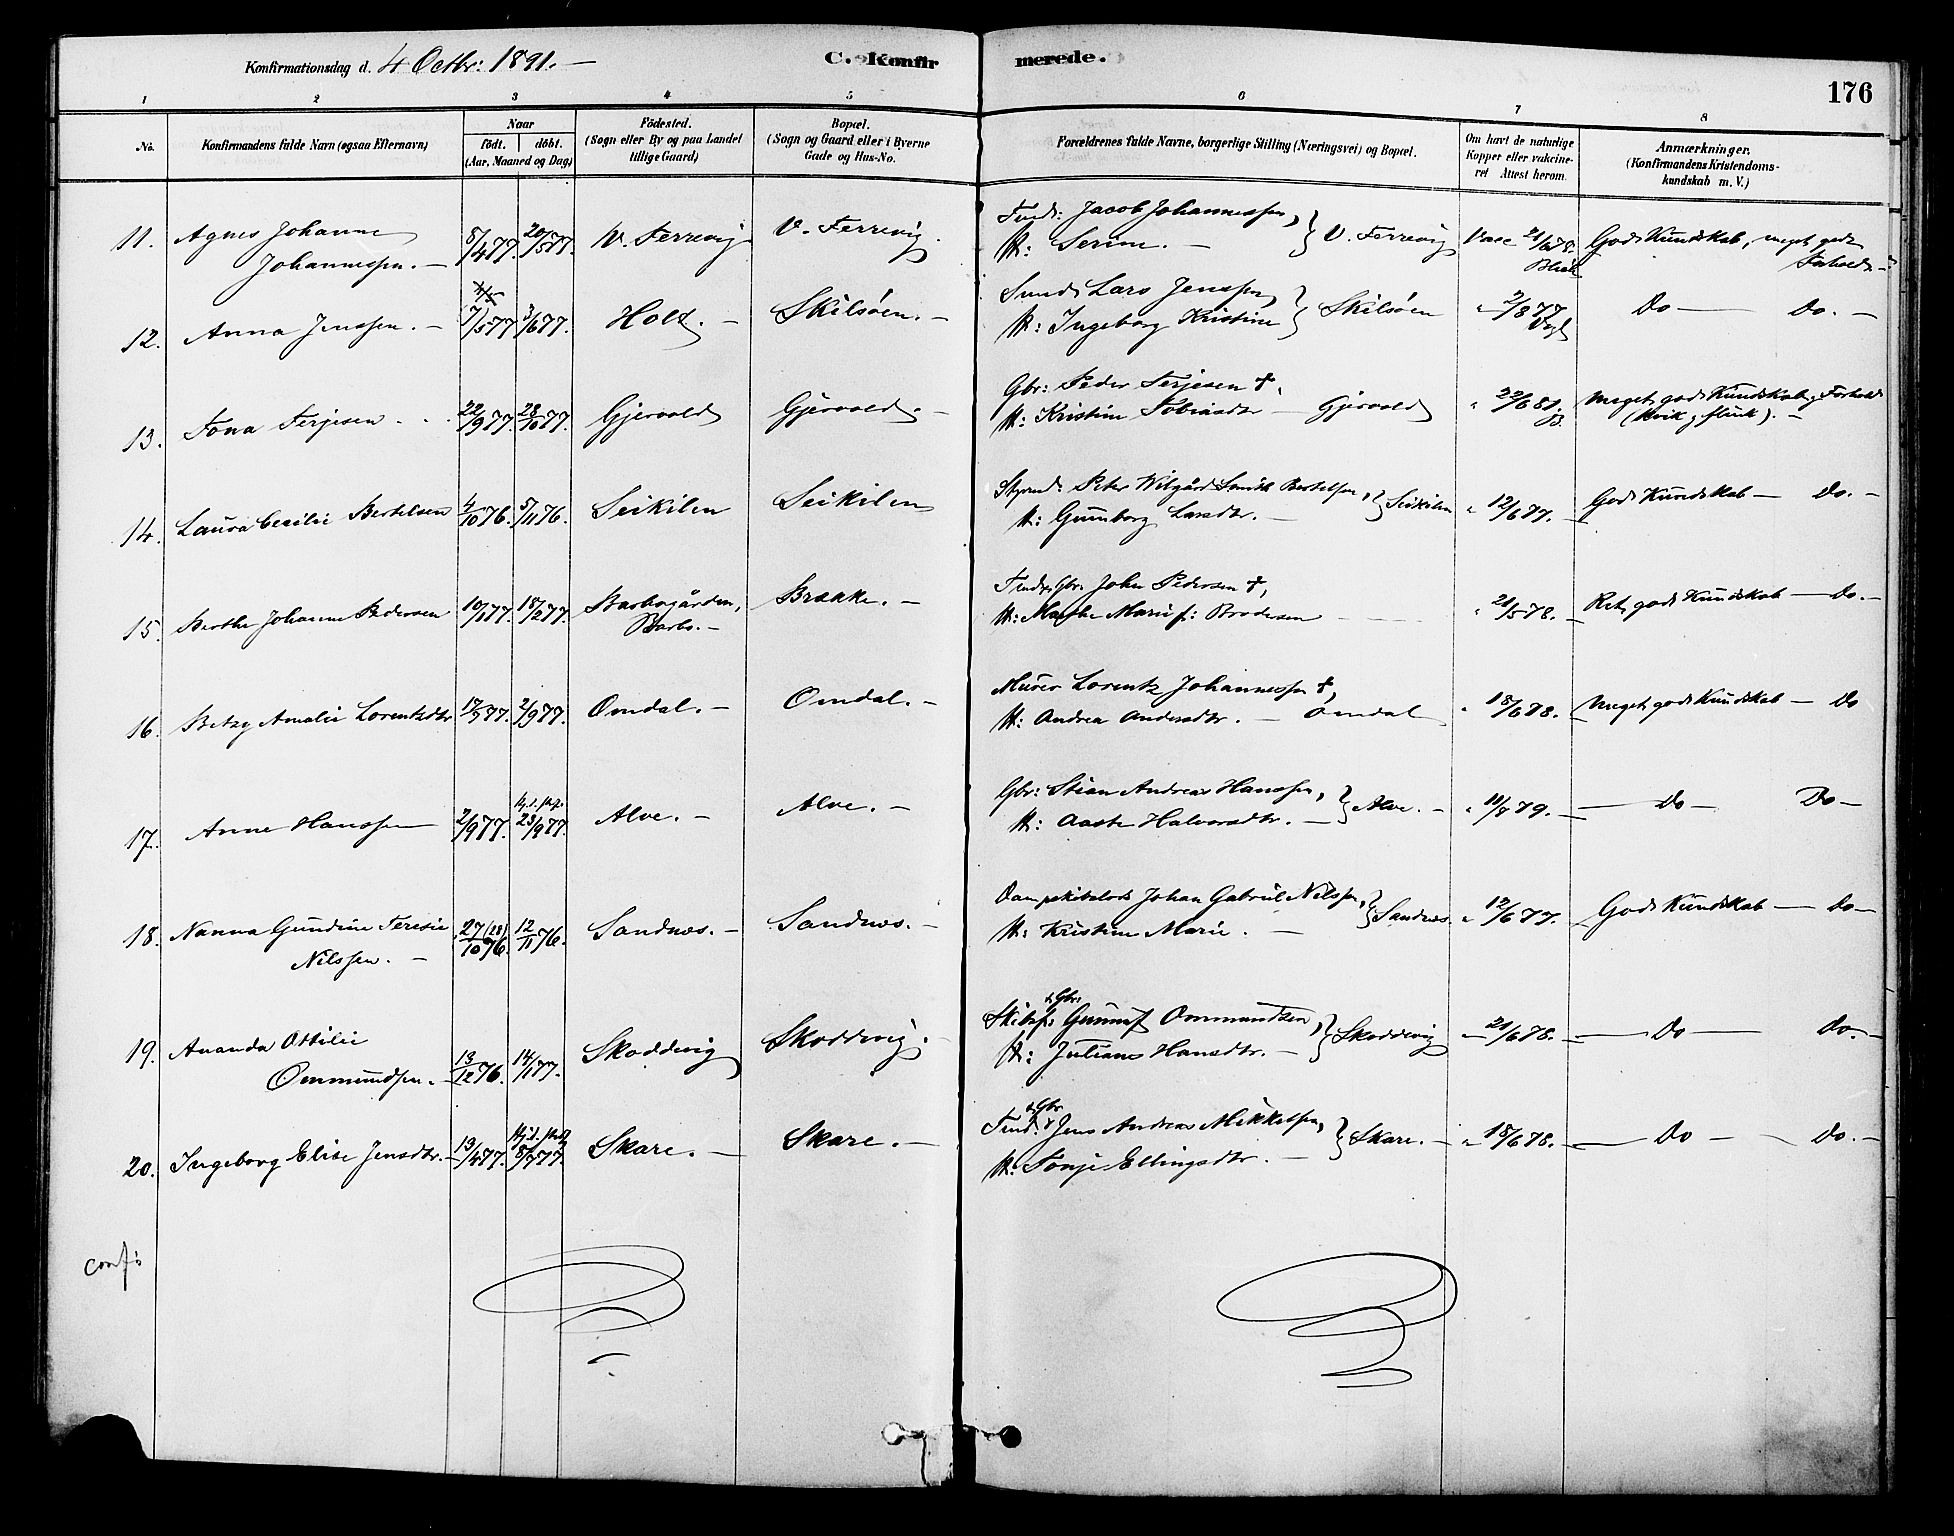 Konfirmationsdag d. 4 Octbr: 1891. —
C. Konfirmerede.
176
1 2 3 4 5 6 7 8
No.
Konfirmandens fulde Navn (ogsaa Efternavn)
Naar
födt. döbt.
(Aar, Maaned og Dag)
Födested.
(Sogn eller By og paa Landet
tillige Gaard)
Bopæl.
(Sogn og Gaard eller i Byerne
Gade og Hus-No.
Forældrenes fulde Navne, borgerlige Stilling (Næringsvei) og Bopæl.
Om havt de naturlige
Kopper eller vakcine-
ret Attest herom.
Anmærkninger.
(Konfirmandens Kristendoms-
kundskab m. V.)
11. Agnes Johanne 8/4 77. 20/5 77. V. Terrevig V. Terrevig. Tmd: Jacob Johannessen, V. Terrevig Vacc 21/6 78. God Kundskab, meget godt
Johannessen. — H: Serine. — Forhold —
12. Anna Jenssen. — 7/5 77 3/6 77. Holt. — Skilsöen. — Smed Lars Jenssen, Skilsöen " 2/8 77 Do — Do. —
H: Ingeborg Kristine Vogt
13. Tona Terjesen 22/9 77. 28/10 77. Gjervold Gjervold. — Gbr: Peder Terjesen †, " 22/6 81. Meget god Kundskab, Forhold
H: Kristine Tobiasdtr — Gjervold B. (kvik, flink). —
14. Laura Cecilie Bertelsen 4/10 76. 5/11 76. Seikilen Seikilen Styrmd: Peter Wilgård Smith Bertelsen, Seikilen " 12/6 77. God Kundskab — Do. —
H: Gunborg Larsdtr. —
15. Berthe Johanne Pedersen 10/1 77. 18/2 77. Barbogården, Brække. — Tmd, Gbr: John Pedersen †, " 21/5 78. Ret god Kundskab — Do. —
Barbo. — H: Marthe Marie f: Brodersen
16. Betzy Amalie Lorentzdtr 17/7 77. 2/9 77. Omdal. — Omdal. — Murer Lorentz Johannessen †, " 18/6 78. Meget god Kundskab — Do
H: Andrea Andersdtr. — Omdal
17. Anne Hanssen 2/9 77. 23/9 77. Alve. — Alve. — Gbr: Stian Andreas Hanssen, Alve. — " 11/8 79. — Do — Do —
H: Aaste Halvorsdtr. —
18. Nanna Gundine Teresie 27 (28)/10 76. 12/11 76. Sandnæs. — Sandnæs. — Dampskibslods Johan Gabriel Nilssen, Sandnæs. " 12/6 77. God Kundskab — Do —
Nilssen. — H: Kristine Marie. —
19. Ananda Ottilie 13/12 76. 14/1 77. Skoddevig Skoddevig. — Skibsf: & Gbr: Gunuf Ommundsen, Skoddevig — 21/6 78. — Do — Do. —
Ommundsen. — H: Juliane Hansdtr. —
20. Ingeborg Elise Jensdtr. — 13/4 77. 8/7 77. Skare. — Skare. — Tmd: & Gbr Jens Andreas Mikkelsen, Skare. — " 18/6 78. — Do — Do. —
H: Tonje Ellingsdtr. —
conf: